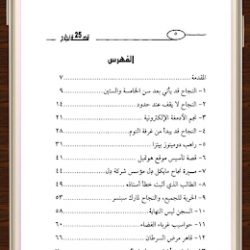 ٥
الفهرس
المقدمة ٧
١- النجاح قد يأتي بعد سن الخامسة والستين ٩
٢- النجاح لا يقف عند حدود ١٤
٣- نجم الأدمغة الإلكترونية ٢١
٤- النجاح قد يبدأ من غرفة النوم ٢٨
٥- راهب دومينوز بيتزا ٣١
٦- قصة تأسيس موقع هوتميل
٧- مسيرة نجاح مايكل دل مؤسس شركة دل
٨- الطالب الذي أثبت خطأ أستاذه
٩- الحرية للجميع، والنجاح لمارك سبنسر
١٠- السجن ليس النهاية
١١- حواسيب غرباء الفضاء ٦٠
١٢- قاهر مرض السرطان ٦٦